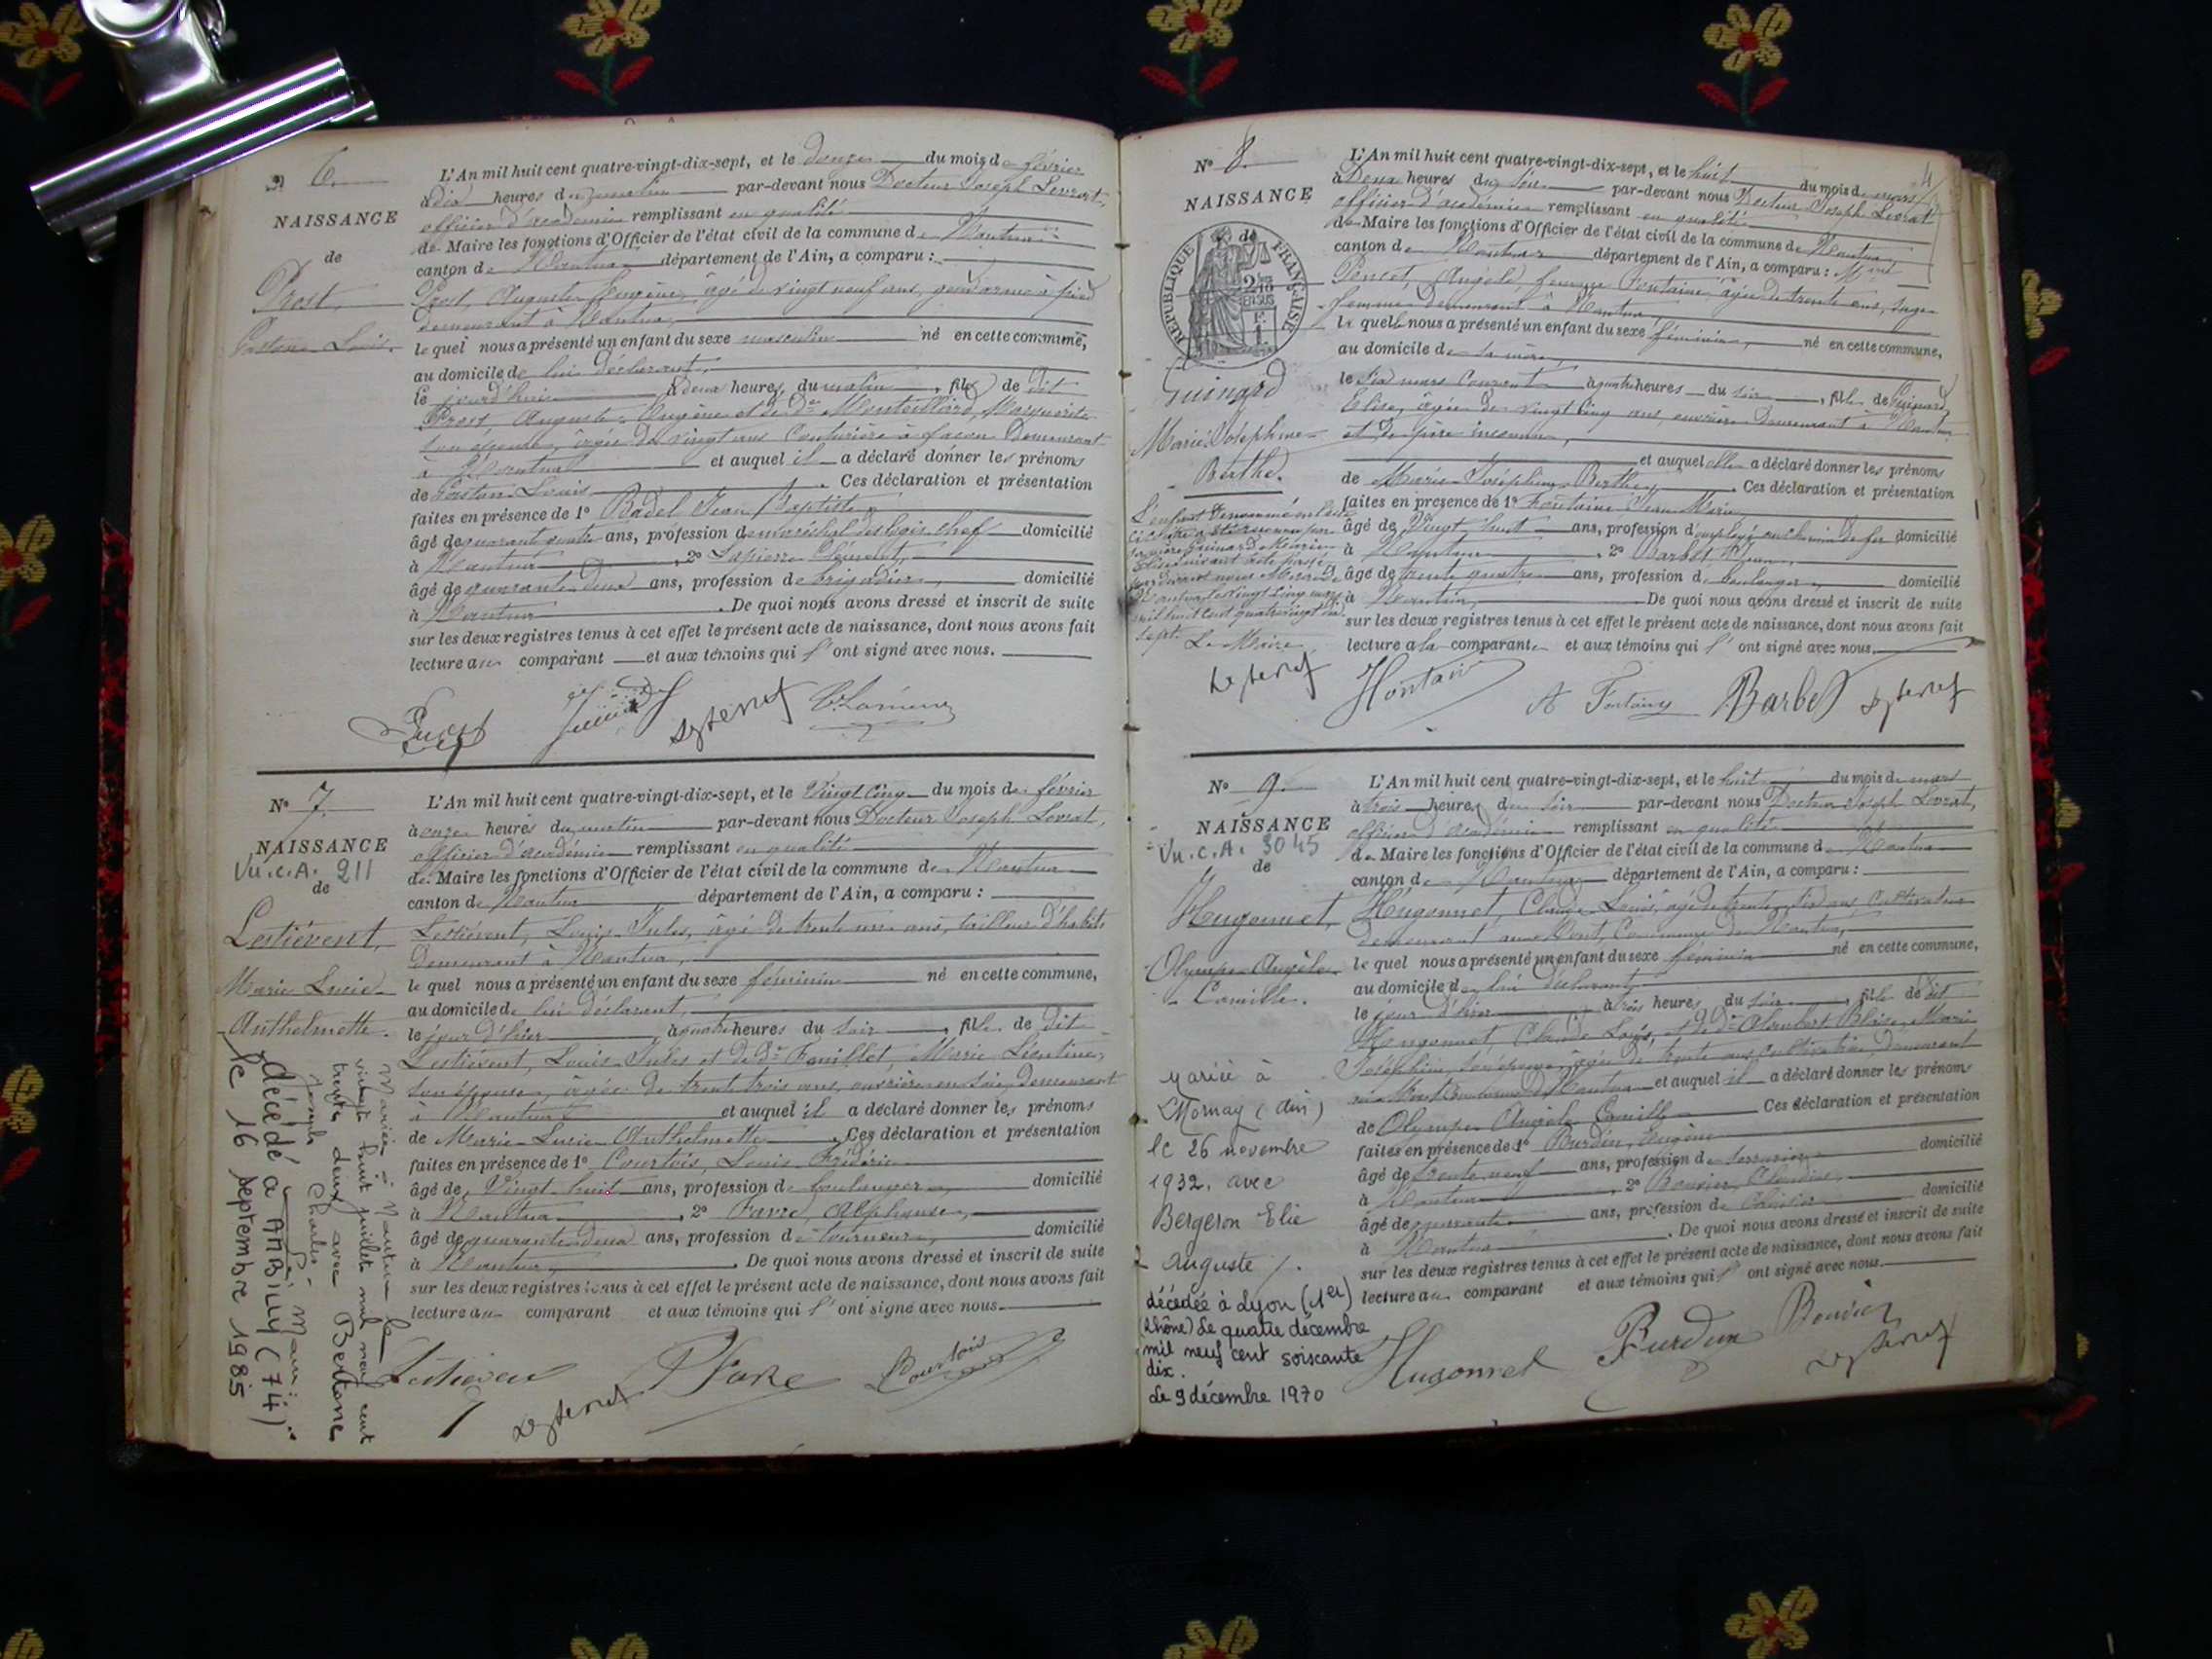 6.
NAISSANCE
de
Prost,
Gaston Louis.
L'An mil huit cent quatre-vingt-dix-sept, et le douze du mois de février
à dix heures du matin par-devant nous Docteur Joseph Levrat,
officier d'académie remplissant en qualité
de Maire les fonctions d'Officier de l'état civil de la commune de Nantua
canton de Nantua département de l'Ain, a comparu :
Prost, Auguste Eugène, âgé de vingt neuf ans, gendarme à pied
demeurant à Nantua,
lequel nous a présenté un enfant du sexe masculin né en cette commune,
au domicile de lui déclarant,
le jourd'hui à deux heures du matin, fils de dit
Prost, Auguste Eugène et de De Marguerite
son épouse, âgée de vingt ans couturière à façon demeurant
à Nantua et auquel il a déclaré donner les prénoms
de Gaston Louis. Ces déclaration et présentation
faites en présence de 1° Badel Jean Baptiste
âgé de quarante quatre ans, profession de maréchal des logis chef domicilié
à Nantua, 2° Lapierre
âgé de quarante deux ans, profession de brigadier, domicilié
à Nantua. De quoi nous avons dressé et inscrit de suite
sur les deux registres tenus à cet effet le présent acte de naissance, dont nous avons fait
lecture au comparant et aux témoins qui l'ont signé avec nous.
N° 7.
NAISSANCE
Vu.C.A. 211
de
Lestiévent,
Marie Lucie
Anthelmette.
Mariée à Nantua le
vingt huit juillet mil neuf cent
trente deux avec Bertone
Joseph Charles
décédé à AMBILLY (74)
le 16 septembre 1985
L'An mil huit cent quatre-vingt-dix-sept, et le vingt cinq du mois de février
à onze heures du matin par-devant nous Docteur Joseph Levrat,
officier d'académie remplissant en qualité
de Maire les fonctions d'Officier de l'état civil de la commune de Nantua
canton de Nantua département de l'Ain, a comparu :
Lestiévent, Louis Jules, âgé de trente un ans, tailleur d'habits
demeurant à Nantua,
lequel nous a présenté un enfant du sexe féminin né en cette commune,
au domicile de lui déclarant,
le jour d'hier à quatre heures du soir, fille de dit
Lestiévent, Louis Jules et de De Fouillet Marie Léontine,
son épouse, âgée de trente trois ans, ouvrière en soie, demeurant
à Nantua et auquel il a déclaré donner les prénoms
de Marie Lucie Anthelmette. Ces déclaration et présentation
faites en présence de 1° Courtois, Louis Frédéric
âgé de vingt huit ans, profession de boulanger, domicilié
à Nantua, 2° Favre, Alphonse,
âgé de quarante deux ans, profession de tourneur, domicilié
à Nantua. De quoi nous avons dressé et inscrit de suite
sur les deux registres tenus à cet effet le présent acte de naissance, dont nous avons fait
lecture au comparant et aux témoins qui l'ont signé avec nous.
Courtois
4
N° 8.
NAISSANCE
de
RÉPUBLIQUE FRANÇAISE
Guinard
Marie Joséphine
Berthe.
L'enfant dénommé en l'acte
ci contre a été reconnu par
sa mère Guinard Marie
Elise suivant acte passé
par devant nous Maire de
Nantua le vingt cinq mars
mil huit cent quatre vingt dix
sept.
Le Maire,
L'An mil huit cent quatre-vingt-dix-sept, et le huit du mois de mars
à deux heures du soir par-devant nous Docteur Joseph Levrat
officier d'académie remplissant en qualité
de Maire les fonctions d'Officier de l'état civil de la commune de Nantua,
canton de Nantua département de l'Ain, a comparu : Me
Angèle, femme Fontaine, âgée de trente ans, sage-
femme demeurant à Nantua
laquelle nous a présenté un enfant du sexe féminin, né en cette commune,
au domicile de sa mère,
le six mars courant à quatre heures du soir, fille de Guinard
Elise, âgée de vingt cinq ans, ouvrière demeurant à Nantua
et de père inconnu,
et auquel elle a déclaré donner les prénoms
de Marie Joséphine Berthe. Ces déclaration et présentation
faites en présence de 1° Fontaine Jean Marie
âgé de vingt huit ans, profession d'employé au chemin de fer domicilié
à Nantua, 2° Barbet
âgé de trente quatre ans, profession de boulanger, domicilié
à Nantua, De quoi nous avons dressé et inscrit de suite
sur les deux registres tenus à cet effet le présent acte de naissance, dont nous avons fait
lecture à la comparante et aux témoins qui l'ont signé avec nous.
Fontaine A Fontaine Barbet
N° 9.
NAISSANCE
Vu.C.A. 3045
de
Hugonnet,
Olympe Angèle
Camille.
Mariée à
Mornay (Ain)
le 26 novembre
1932. avec
Bergeron Elie
Auguste /.
décédée à Lyon (1er)
(Rhône) Le quatre décembre
mil neuf cent soixante
dix.
Le 9 décembre 1970
L'An mil huit cent quatre-vingt-dix-sept, et le huit du mois de mars
à trois heures du soir par-devant nous Docteur Joseph Levrat,
officier d'académie remplissant en qualité
de Maire les fonctions d'Officier de l'état civil de la commune de Nantua
canton de Nantua département de l'Ain, a comparu :
Hugonnet, Claude Louis, âgé de trente six ans, cultivateur
demeurant au Mont, Commune de Nantua,
lequel nous a présenté un enfant du sexe féminin né en cette commune,
au domicile de lui déclarant,
le jour d'hier à trois heures du soir, fille de dit
Hugonnet, Claude Louis, et de De Marie
Joséphine, son épouse, âgée de trente ans, cultivatrice, demeurant
au Mont Commune de Nantua et auquel il a déclaré donner les prénoms
de Olympe Angèle Camille Ces déclaration et présentation
faites en présence de 1° Burdin, Eugène
âgé de trente neuf ans, profession de serrurier domicilié
à Nantua, 2° Bouvier, Claudius,
âgé de quarante ans, profession de domicilié
à Nantua. De quoi nous avons dressé et inscrit de suite
sur les deux registres tenus à cet effet le présent acte de naissance, dont nous avons fait
lecture au comparant et aux témoins qui l'ont signé avec nous.
Hugonnet Burdin Bouvier